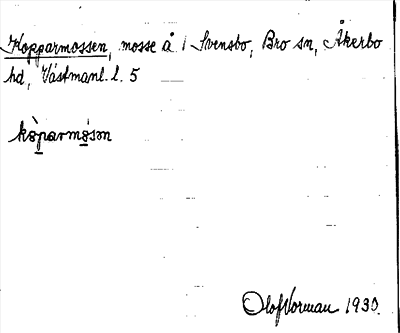 Kopparmossen, mosse å 1 Svensbo, Bro sn, Åkerbo
hd, Västmanl. l. 5
kòparmósən
Olof Norman 1930.